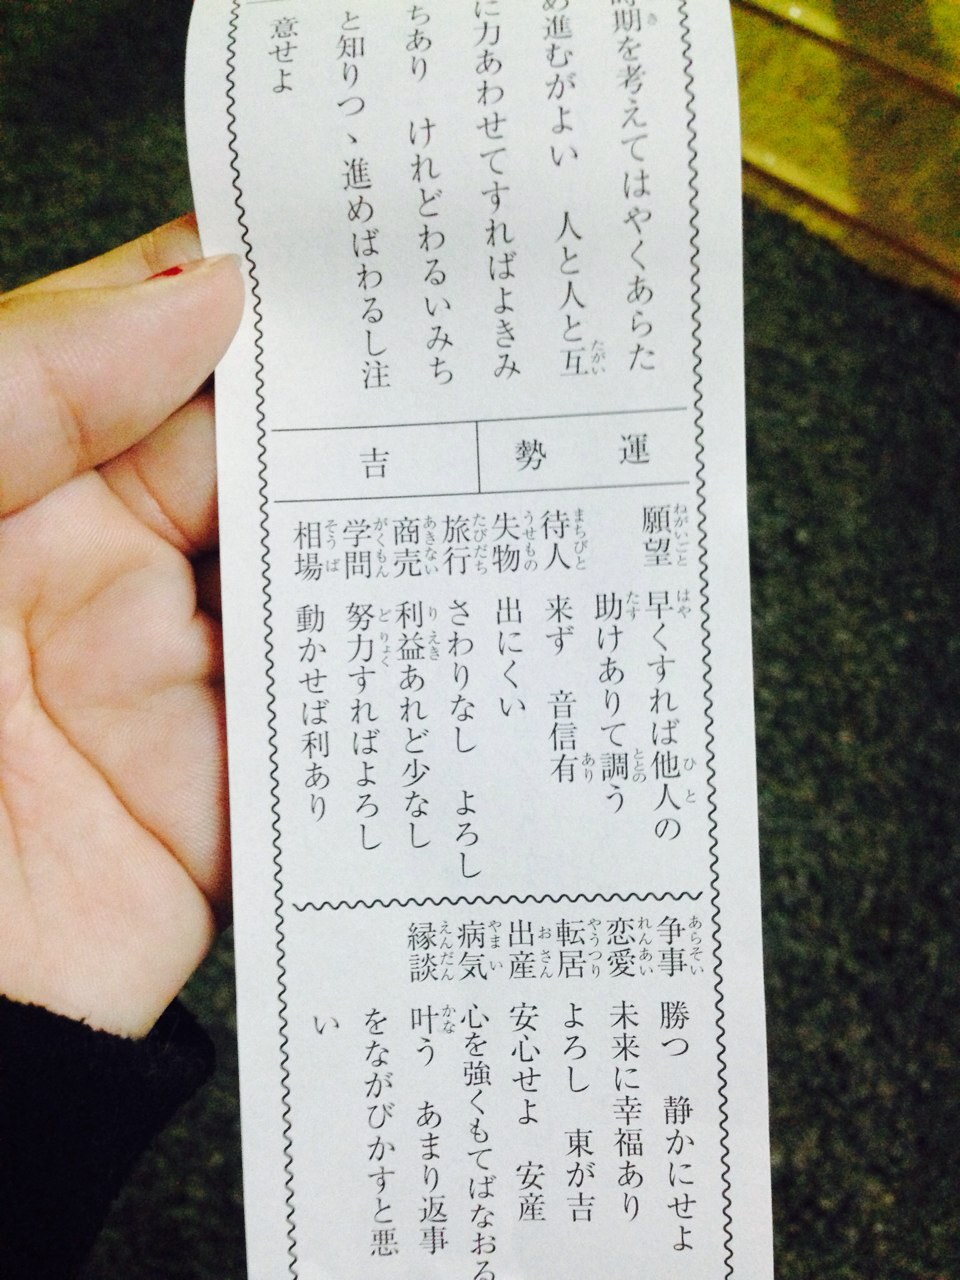 時期を考えてはやくあらた
め進むがよい 人と人と互
に力あわせてすればよきみ
ちあり けれどわるいみち
と知りつゝ進めばわるし注
意せよ
運勢
吉
願望 早くすれば他人の
助けありて調う
待人 来ず 音信有
失物 出にくい
旅行 さわりなし よろし
商売 利益あれど少なし
学問 努力すればよろし
相場 動かせば利あり
争事 勝つ 静かにせよ
恋愛 未来に幸福あり
転居 よろし 東が吉
出産 安心せよ 安産
病気 心を強くもてばなおる
縁談 叶う あまり返事
をながびかすと悪
い